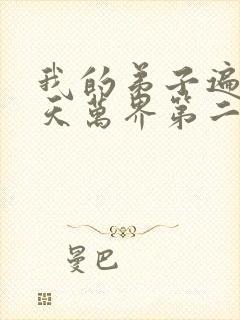 我的弟子遍
天萬界第二
曼巴